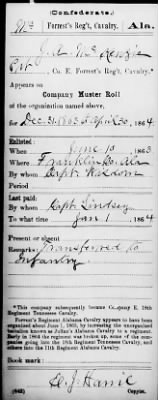 (Confederate.)
Mc Forrest's Reg't, Cavalry. Ala.
J. A. McKenzie
Pvt, Co. E, Forrest's Reg't, Cavalry.*
Appears on
Company Muster Roll
of the organization named above,
for Dec. 31, 1863 to April 30, 1864
Enlisted:
When June 10, 1863
Where Franklin Co. Ala
By whom Capt.
Period
Last paid:
By whom Capt. Lindsey
To what time June 1, 1864
Present or absent
Remarks: Transferred to
Infantry
*This company subsequently became Company E, 18th
Regiment Tennessee Cavalry.
Forrest's Regiment Alabama Cavalry appears to have
been organized about June 1, 1863, by increasing the
battalion known as Julian's Alabama Cavalry to a regiment.
Early in 1864 the regiment was broken up, some of the com-
panies going into the 18th Regiment Tennessee Cavalry and
others into the 11th Regiment Alabama Cavalry.
Book mark:
(642)
Copyist.